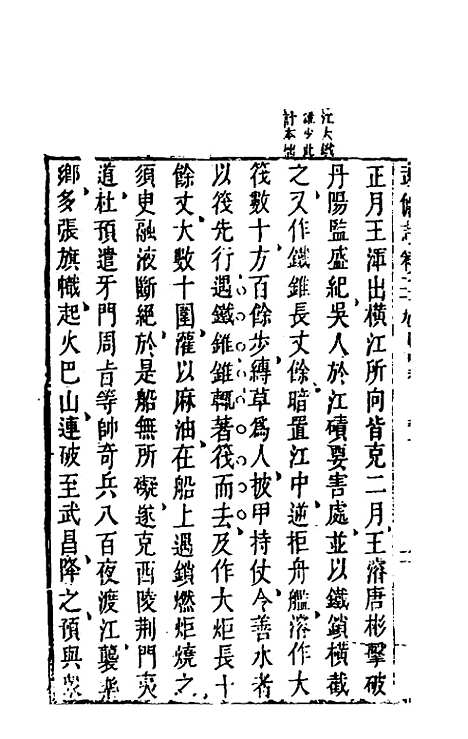 江大戰
此
計本
正月王渾出橫江所向皆克二月王濬唐彬擊破
丹陽監盛紀吳人於江磧要害處並以鐵鎖橫截
之又作鐵錐長丈餘暗置江中逆拒舟艦濬作大
筏數十方百餘步縛草爲人披甲持仗令善水者
以筏先行遇鐵錐錐輒著筏而去及作大炬長十
餘丈大數十圍灌以麻油在船上遇鎖燃炬燒之
須臾融液斷絕於是船無所礙遂克西陵荆門夷
道杜預遣牙門周旨等帥奇兵八百夜渡江襲樂
鄉多張旗幟起火巴山連破至武昌降之預與衆